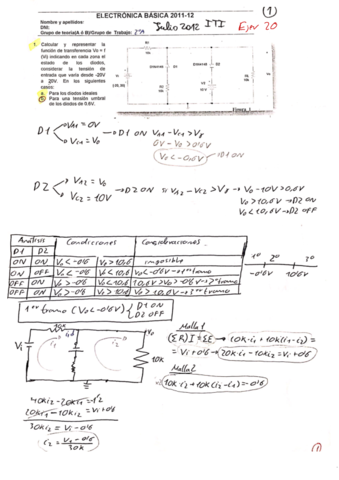 ELECTRÓNICA BÁSICA 2011-12
Nombre y apellidos:
DNI:
Julio 2012 ITI
(1)
Ejer 20
1. Calcular y representar la
función de transferencia Vo = f
(Vi) indicando en cada zona el
estado de los diodos,
considerar la tensión de
entrada que varía desde -20V
a 20V. En los siguientes
casos:
a. Para los diodos ideales
b. Para una tensión umbral
de los diodos de 0.6V.
D1 VA1 = 0V
VC1 = Vo → D1 ON VA1 - VC1 > Vγ
0V - Vo > 0'6V
Vo < -0'6V → D1 ON
D2 VA2 = Vo
VC2 = 10V → D2 ON si VA2 - VC2 > Vγ → Vo - 10V > 0,6V
Vo > 10,6V → D2 ON
Vo < 10,6V → D2 OFF
Análisis Condiciones Consideraciones
D1 D2
ON ON Vo < -0'6 Vo > 10,6 imposible
ON OFF Vo < -0'6 Vo < 10,6 Vo < -0'6V → 1er tramo
OFF OFF Vo > -0'6 Vo < 10,6 10,6V > Vo > -0'6V → 2º tramo
OFF ON Vo > -0'6 Vo > 10,6 Vo > 10,6V → 3er tramo
1º 2º 3º
-0'6V 10'6V
1er tramo (Vo < -0'6V) D1 ON
D2 OFF
10K
Vo
Vi
i1
i2
10K
Malla 1
(ΣR) I = ΣE → 10K·i1 + 10K(i1 - i2) =
= Vi + 0'6 → 20K·i1 - 10K i2 = Vi + 0'6
Malla 2
10K·i2 + 10K(i2 - i1) = -0'6
40K i2 - 20K i1 = -1'2
20K i1 - 10K i2 = Vi + 0'6
30K i2 = Vi - 0'6
i2 = Vi - 0'6 / 30K